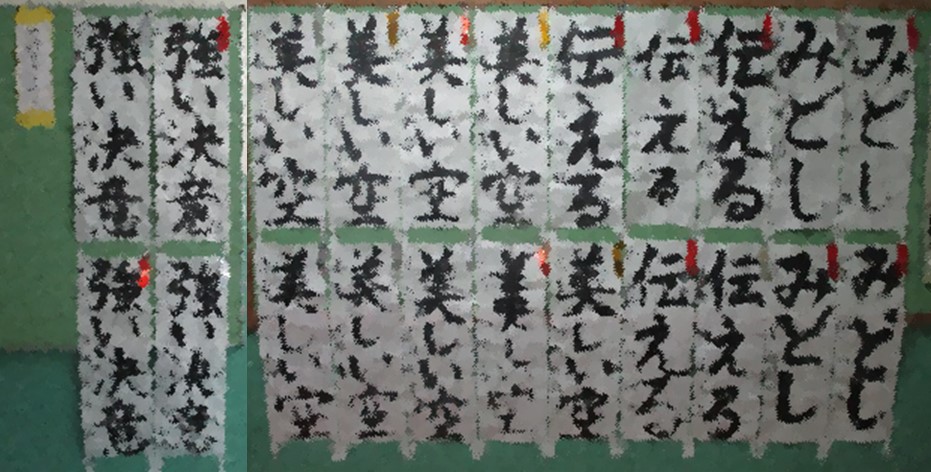 みとし
みとし
伝える
伝える
伝える
美しい空
美しい空
美しい空
美しい空
みとし
みとし
伝える
伝える
美しい空
美しい空
美しい空
美しい空
美しい空
強い決意
強い決意
強い決意
強い決意